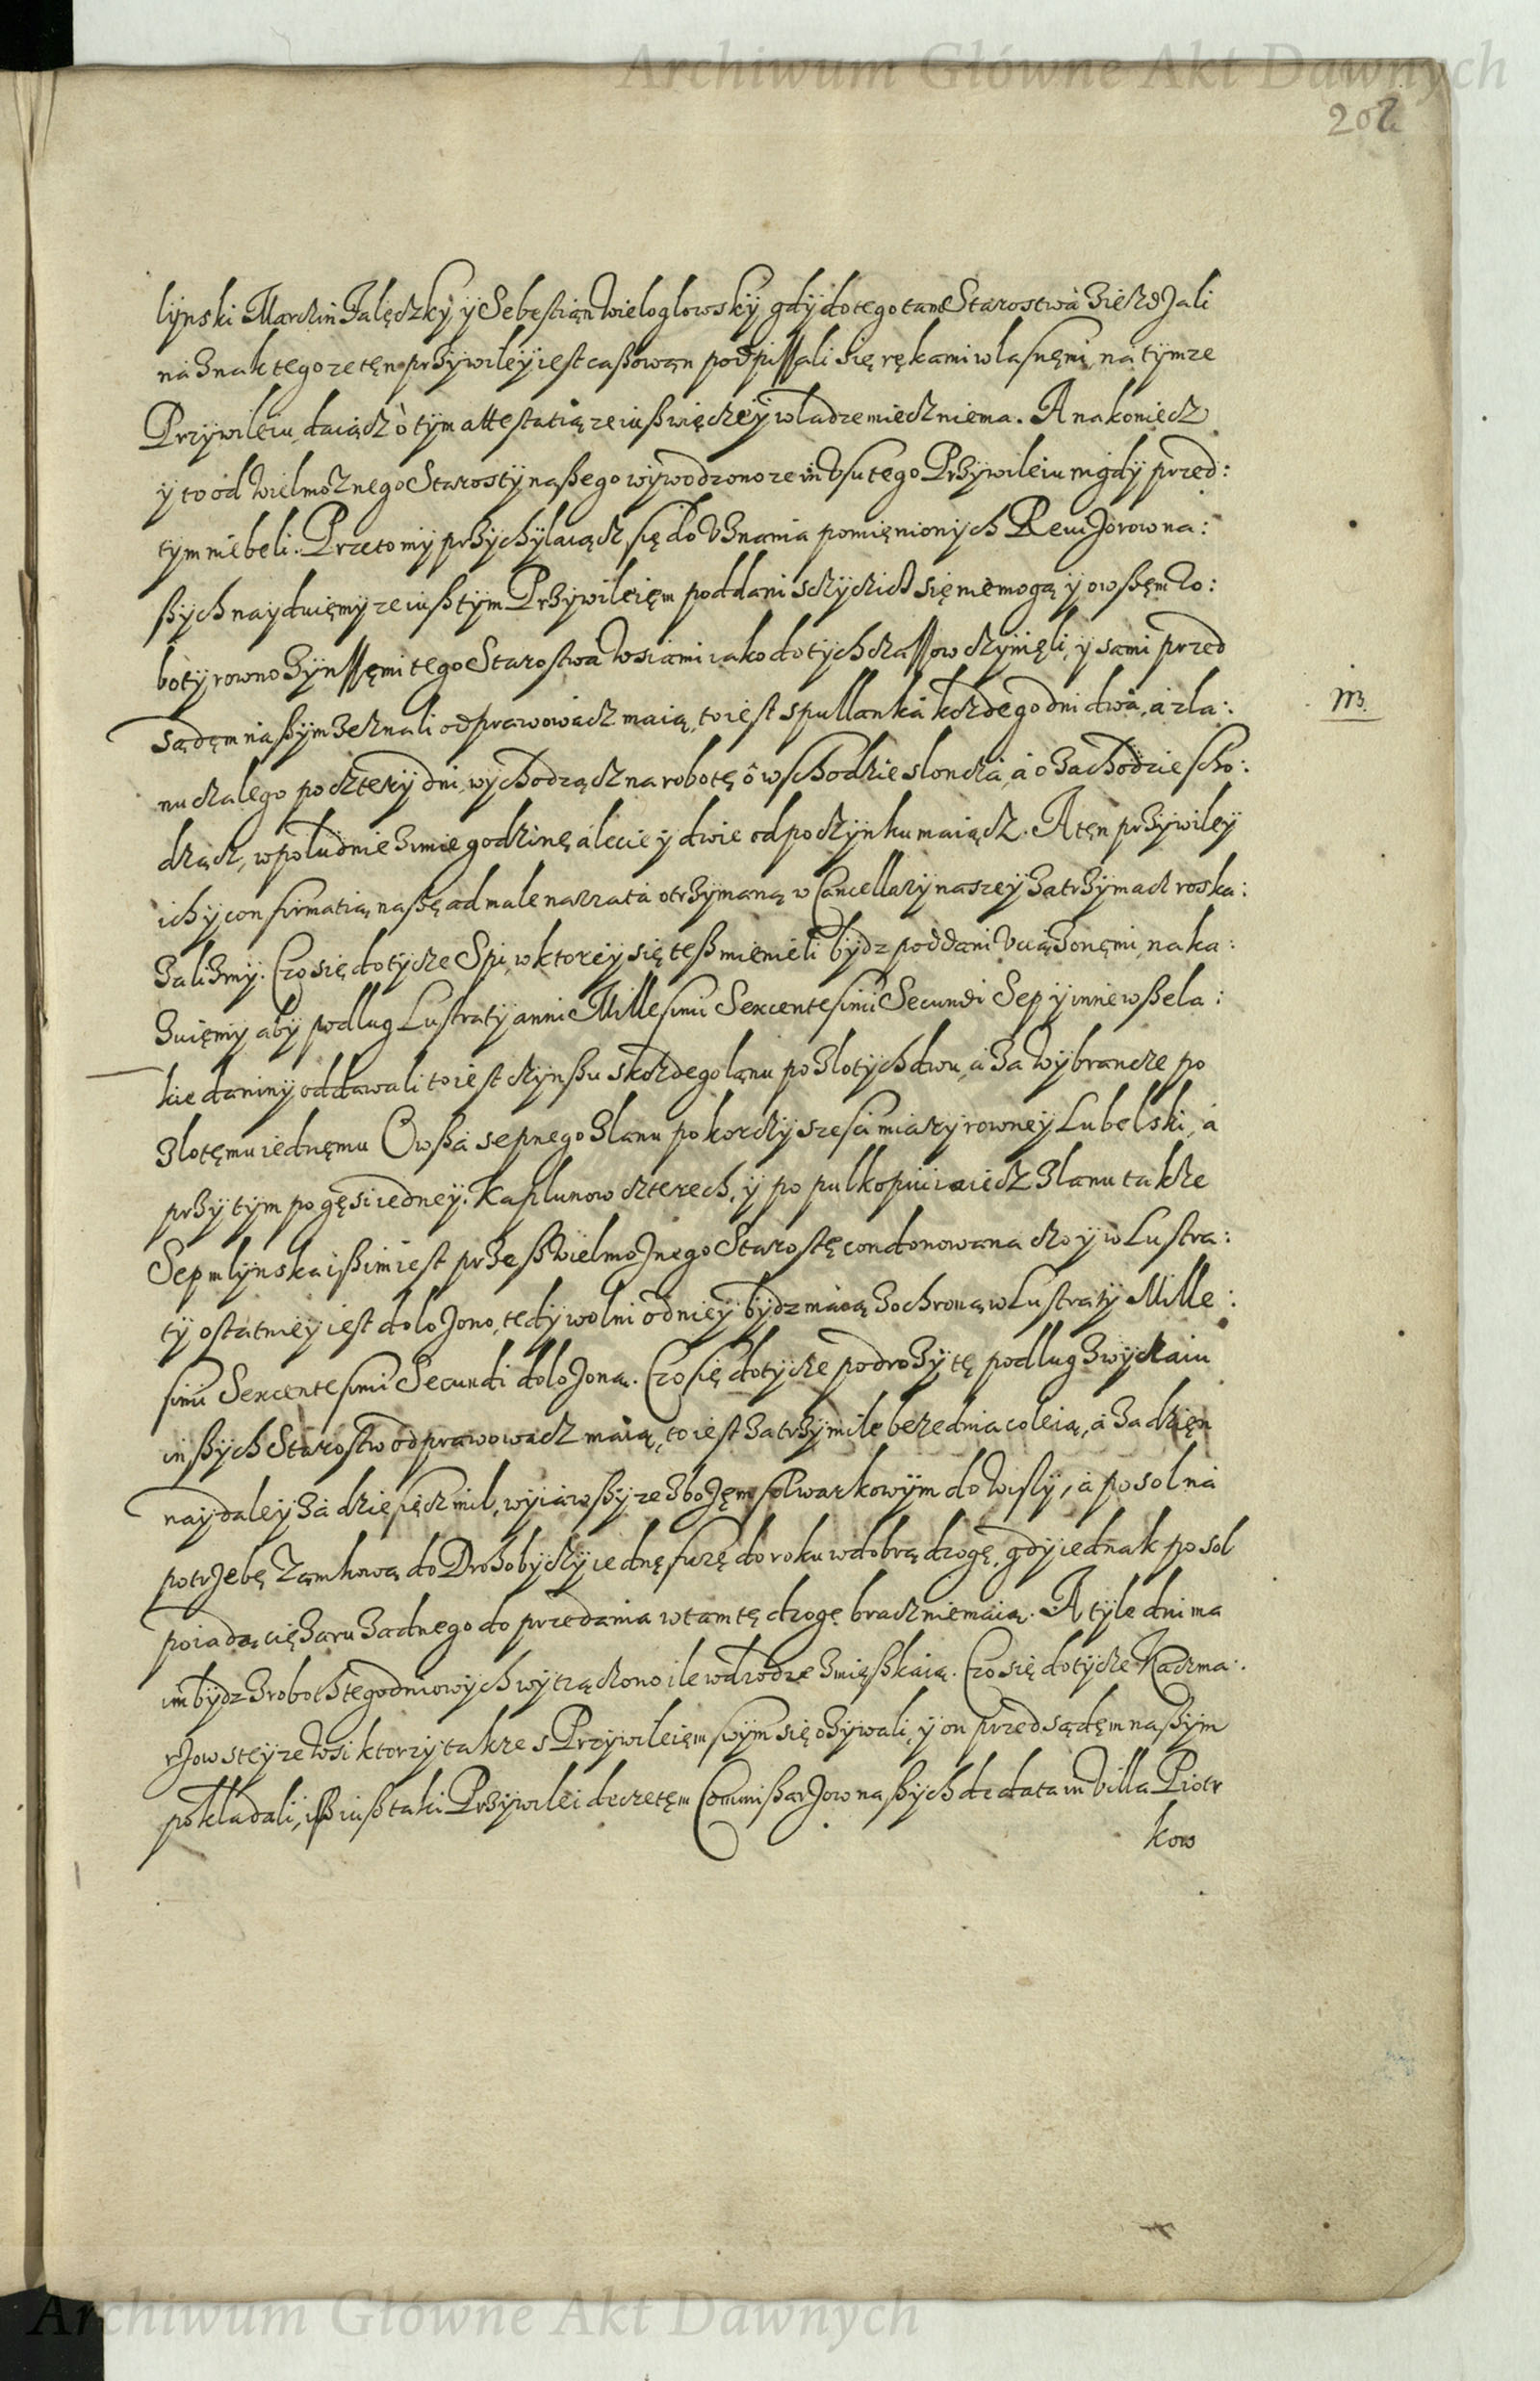 Archiwum Główne Akt Dawnych
202
lynski Marczin Zalęczky y Sebęstian Wieloglowsky gdy do tego tam Starostwa ziezdzali
na znak tego ze tęn przywiley iest cassowąn podpissali się rękami wlasnęmi, na tymze
Przywileiu, daiącz o tym attestatią ze iuss więczey wladze miecz niema. A nakoniecz
y to od Wielmoznego Starosty nassego wywodzono ze in Vsu tego Przywileiu nigdy przed:
tym niebeli. Przeto my przychylaiącz się do Vznania pomięnionych Reuizorow na:
ssych nayduięmy ze iuss tym Przywileięm poddani sczyczicz się niemogą y owssęm Ro:
boty rowno z ynssęmi tego Starostwa Wsiami iako do tych czassow czynięli, y sami przed
Sądęm nassym zeznali odprawowacz maią, to iest s pullanka kozdego dni dwa, a z la:
nu czalego po cztery dni, wychodzącz na robotę o wschodzie sloncza, a o zachodzie scho:
dząc, w poludnie zimie godzinę a lecie y dwie odpoczynku maiącz. A tęn przywiley
ich y confirmatią nassę ad male narrata otrzymaną w Cancellary naszey zatrzymacz roska:
zalismy. Czo się dotycze Spi, w ktorey się tess mienieli bydz poddani Vciązonęmi, naka:
zuięmy aby podlug Lustraty anni Millesimi Sexcentesimi Secundi Sep y inne wssela:
kie daniny oddawali to iest czynssu s kozdego lanu po zlotych dwu, a za wybrancze po
zlotęmu iednęmu Owssa sepnego z lanu po korczy szesci miary rowney Lubelski, a
przy tym po gęsi iedney: Kaplunow czterech, y po pulkopiu iaiecz z lanu takze
Sep mlynska iss im iest przess Wielmoznego Starostę condonowana czo y w Lustra:
ty ostatniey iest dolozono, tedy wolni od niey bydz maią z ochroną w Lustraty Mille:
simi Sexcentesimi Secundi dolozoną. Czo się dotycze podrozy tę podlug zwyczaiu
inssych Starostw odprawowacz maią, to iest za trzy mile bezednia coleią, a za dzięn
naydaley za dziesięcz mil, wyiawssy ze zbozęm folwarkowym do Wisly, a po sol na
potrzebę Zamkową do Drohobyczy iednę furę do roku w dobrą drogę, gdy iednak po sol
poiadą cięzaru zadnego do przedania w tamtę drogę bracz niemaią. A tyle dni ma
im bydz z robot tegodniowych wytrączono ile w drodze zmięsskaią. Czo się dotycze Kaczma:
rzow s teyze Wsi ktorzy takze s Przywileięm swym się ozywali, y on przed sądęm nassym
pokladali, iss iuss taki Przywilei decretęm Commissarzow nassych de data in Villa Piotr
kow
Archiwum Główne Akt Dawnych